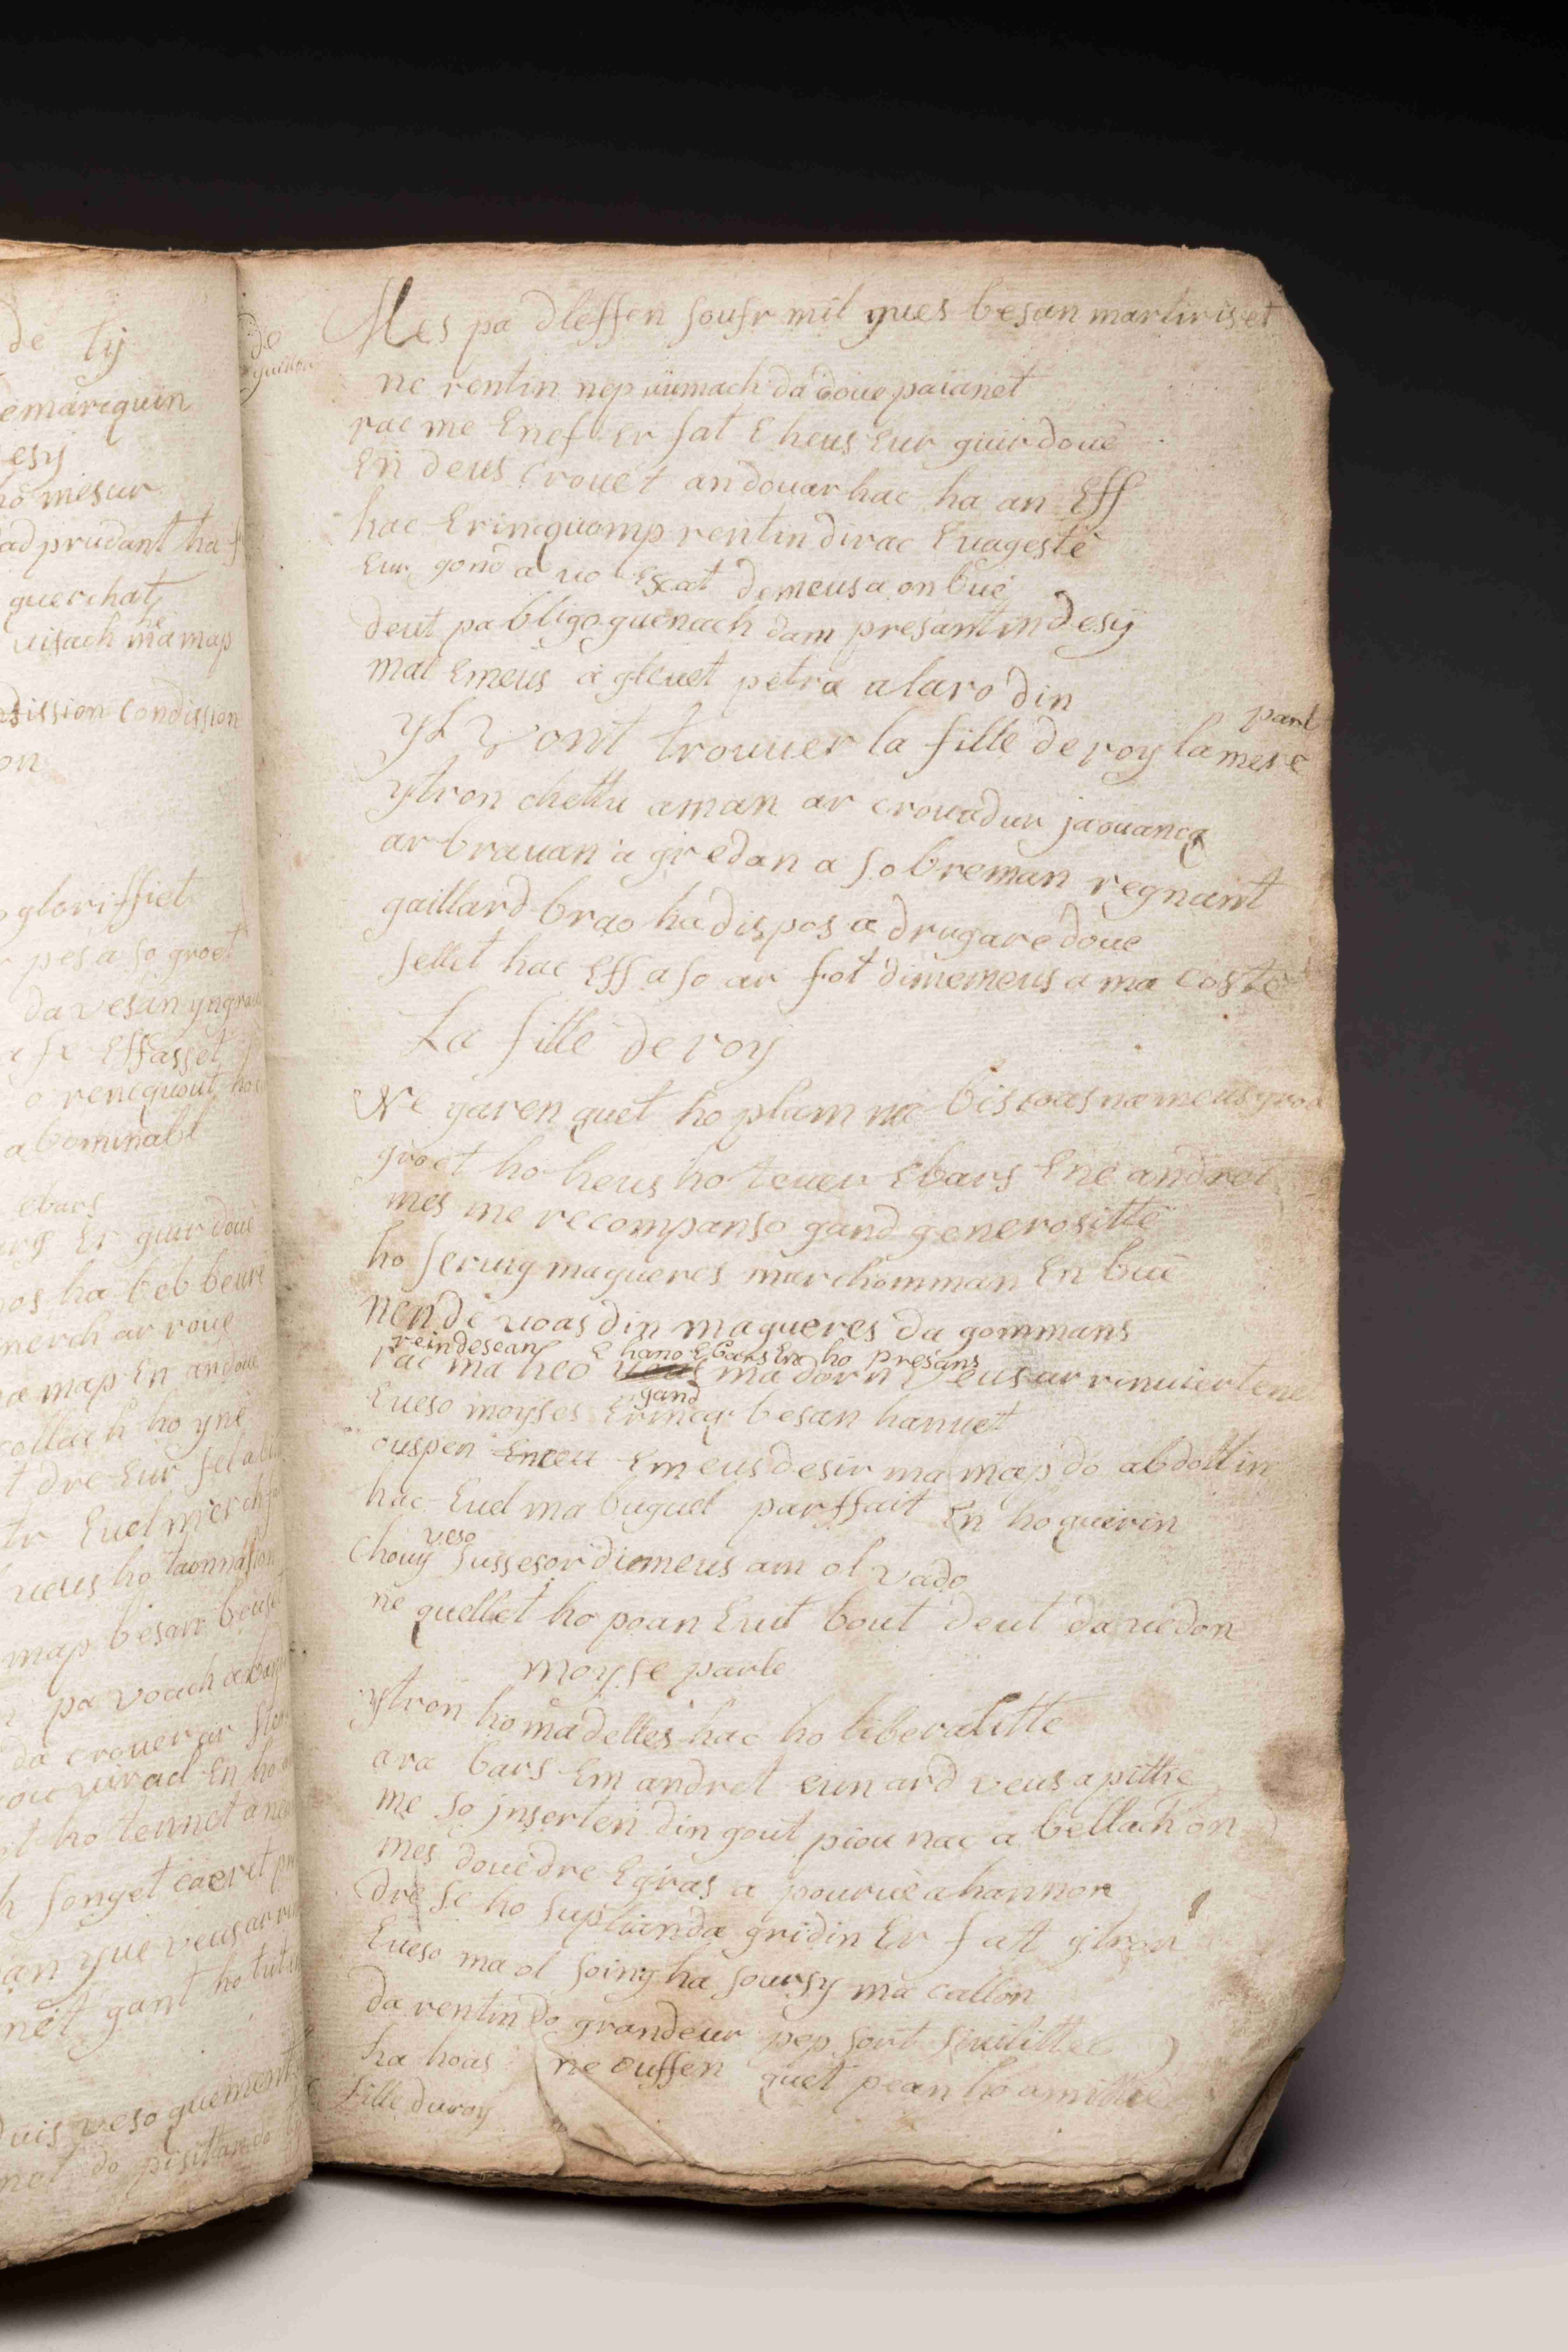 de tÿ
emarcquin
esÿ
ho mesur
ad prudant ha
guerchat
uisach ma map
he
sission condission
on
gloriffiet
pes a so groet
da vesan yngra
a se Effasset
o rencquout ho
abominabl
ebars
Er guir doue
os ha beb beure
merch ar roue
map En an doue
collach ho yne
t dre Eur fel abl
tr Euel merch
ueus ho taonnasion
map besan beuset
pa voach a
da crouer ar
uirad En ho
ho tennet a
songet caeret
an yue veus ar
net gant ho tut
duis veso quement
do pisitan do
de
Mes pa dleffen soufr mil gues besan martiriset
ne rentin nep uümach da doue paianet
rac me Enef Er fat E heus Eur guir doue
En deus crouet an douar hac ha an Eff
hac Erincquomp rentin dirac E uageste
Eur gond a vo Exat demeus a on bue
deut pa bligo guenach dam presantin desÿ
mat Emeus a gleuet petra a laro din
yl vont trouuer la fille de roy la mere
parl
ytron chettu aman ar crouadur jaouancq
ar brauan a gredan a so breman regnant
gaillard brao ha dispos a drugare doue
sellet hac Eff a so ar fot dimemeus a ma coste
La fille de roy
Ne garen quet ho plam na biscoas nemeus
groet ho heus ho teuer Ebars Ene andret
mes me recompanso gand generositte
ho seruig magueres marchomman En bue
nen de voas din magueres da gommans
reindesean E hano Ebars En ho presans
rac ma heo ma dorn veus ar riuuier tene
gand
Eueso moyses Erincq besan hanuet
ouspen Enceu Emeus desir ma map do abdottin
hac Euel ma buguel parffait En ho querin
veso
Chouÿ sussesor diemeus am ol vado
ne quellet ho poan Euit bout deut dauedon
moyse parle
ytron ho madelles hac ho liberalitte
ara bars Em andret eun ard veus a pittie
me so jnserten din gout piou nac a bellach on
mes doue dre E gras a pourue ahannon
dre se ho suplian da gridin Er fatt ytron
Eueso ma ol soing ha soursy ma callon
da rentin do grandeur pep sort siuilittee
ha hoas ne ouffen quet pean ho amittie
fille du roy